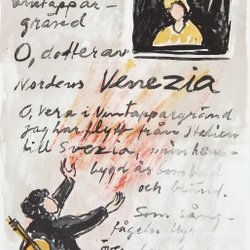 gränd
O, dotter av
Nordens Venezia
O, Vera i Vintappargränd
jag har flytt från Italien
till Svezia, min hem-
bygd är bombad
och bränd.
Som sång-
fågeln